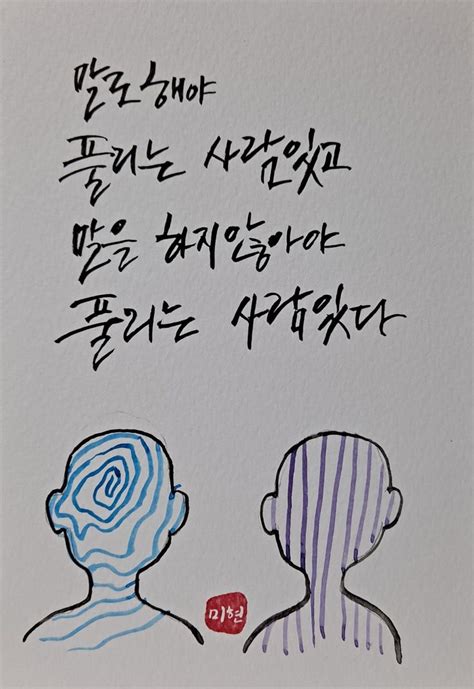 말로해야
풀리는 사람있고
말을 하지않아야
풀리는 사람있다
미현